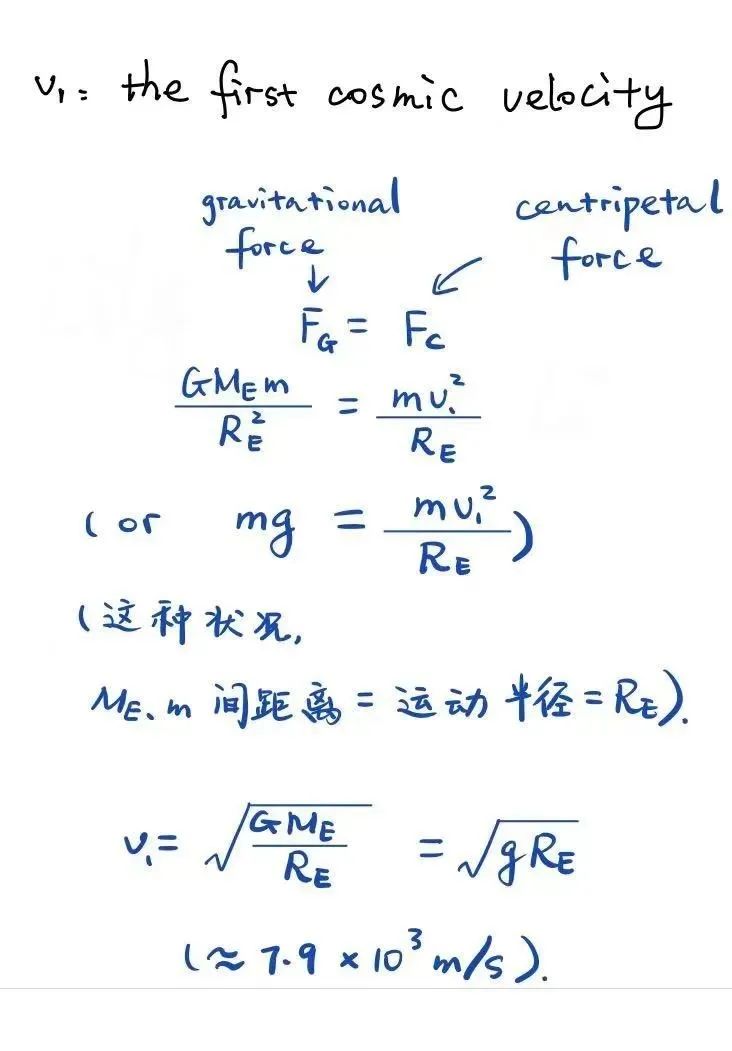 v₁: the first cosmic velocity
gravitational centripetal
force force
↓ ↙
F_G = F_C
GM_E m / R_E² = mv₁² / R_E
(or mg = mv₁² / R_E)
(这种状况,
M_E、m 间距离 = 运动半径 = R_E).
v₁ = √(GM_E / R_E) = √(gR_E)
(≈ 7.9 × 10³ m/s).